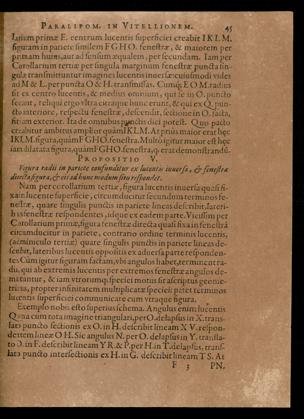 PARALIPOM. IN VITELLIONEM. 45
latum primæ E. centrum lucentis superficiei creabit IKLM.
figuram in pariete similem FGHO. fenestræ, & maiorem per
primam huius, aut ad sensum æqualem, per secundam. Iam per
Corollarium tertiæ per singula marginum fenestræ puncta sin-
gula transmittuntur imagines lucentis inuersæ: cuiusmodi vides
ad M & L. per puncta O & H. transmissas. Cumq; EOM. radius
sit ex centro lucentis, & medius omnium, qui ic in O. puncto
secant, reliqui ergo vltra citraque hunc erunt, & qui ex Q. pun-
cto interiore, respectu fenestræ, descendit, sectione in O. facta,
fiet exterior. Ita de omnibus punctis dici poterit. Quo pacto
creabitur ambitus amplior quàm IKLM. At prius maior erat hęc
IKLM. figura, quàm FGHO. fenestra. Multò igitur maior est hęc
iam dilatata figura, quàm FGHO. fenestra, φ erat demonstrandũ.
PROPOSITIO V.
Figura radii in pariete confunditur ex lucentis inuersa, & fenestræ
directa figura, & est ad hunc modum situ respondet.
Nam per corollarium tertiæ, figura lucentis inuersa quasi fi-
xa in lucente superficie, circumducitur secundum terminos fe-
nestræ, quare singulis punctis in pariete lineas describit, lateri-
bus fenestræ respondentes, idque ex eadem parte. Vicissim per
Corollarium primæ, figura fenestræ directa quasi fixa in fenestra
circumducitur in pariete, contrario ordine terminis lucentis,
(adminiculo tertiæ) quare singulis punctis in pariete lineas de-
scribit, lateribus lucentis oppositis ex aduersa parte responden-
tes. Cùm igitur figuram faciant, vbi angulos habet, terminet ra-
dij, qui ab extremis lucentis per extremos fenestræ angulos de-
mittantur, & iam vtrorumq; species motus sit ascriptus geome-
tricus, propter infinitatem multiplicatæ speciei: patet terminos
lucentis superficiei communicare cum vtraque figura.
Exemplo nobis esto superius schema. Angulus enim lucentis
Q una cum tota imagine triangulari, per O. delapsus in X. trans-
lato puncto sectionis ex O. in H. describit lineam XV. respon-
dentem lineæ OH. Sic angulus N. per O. delapsus in Y. transla-
to O. in F. describit lineam YR. & P. per H. in T. delapsus, trans-
lata puncto intersectionis ex H. in G. describit lineam TS. At
F 3 PN.